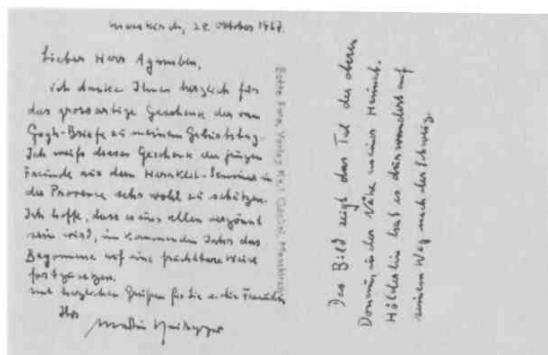 Messkirch, 29. Oktober 1967.
Lieber Herr Agamben,
ich danke Ihnen herzlich für
das grossartige Geschenk der van
Gogh-Briefe zu meinem Geburtstag.
Ich weiß dieses Geschenk der jungen
Freunde aus dem Heraklit-Seminar in
der Provence sehr wohl zu schätzen.
Ich hoffe, dass es uns allen vergönnt
sein wird, im kommenden Jahr das
Begonnene auf eine fruchtbare Weise
fortzusetzen.
mit herzlichen Grüßen für Sie u. die Freunde
Ihr
Martin Heidegger
Verlag Messkirch
Das Bild zeigt das Tal der oberen
Donau, in der Nähe meiner Heimat.
Hölderlin hat es durchwandert auf
seinem Weg nach der Schweiz.